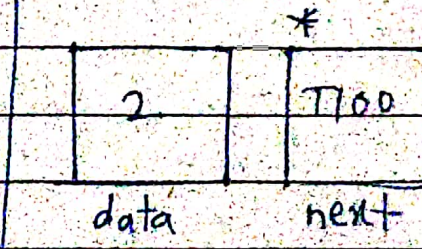 *
2 T100
data next